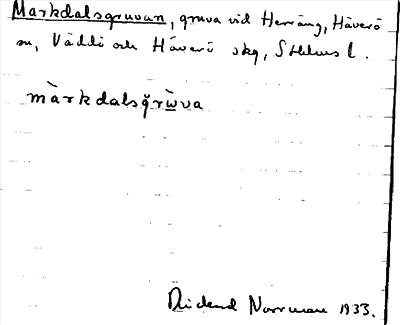 Markdalsgruvan, gruva vid Herräng, Häverö
sn, Väddö och Häverö skg, Sthlms l.
màrkdalsgrùva
Didend Norrman 1933.